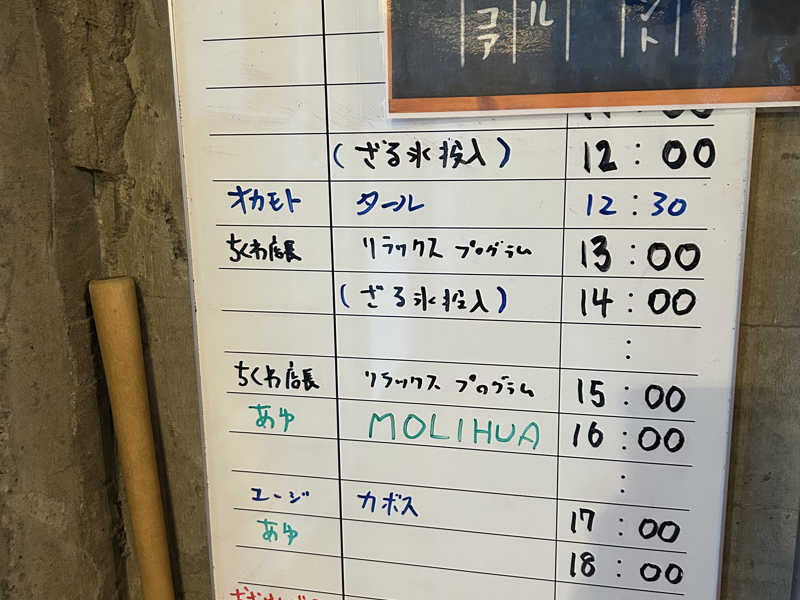 コア
ル
ント
(ざる氷投入) 12:00
オカモト タール 12:30
ちくわ店長 リラックス プログラム 13:00
(ざる氷投入) 14:00
:
ちくわ店長 リラックス プログラム 15:00
あゆ MOLIHUA 16:00
:
エージ カボス 17:00
あゆ 18:00